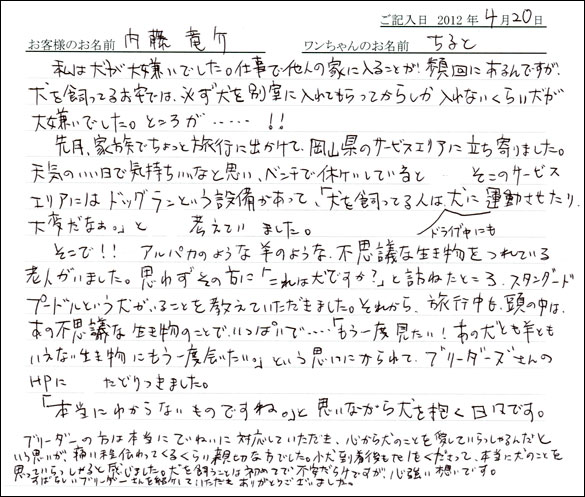 ご記入日 2012年4月20日
お客様のお名前 内藤 竜介 ワンちゃんのお名前 ちると
私は犬が大嫌いでした。仕事で他人の家に入ることが頻回にあるんですが、
犬を飼ってるお宅では、必ず犬を別室に入れてもらってからしか入れないくらい犬が
大嫌いでした。ところが……!!
先月、家族でちょっと旅行に出かけて、岡山県のサービスエリアに立ち寄りました。
天気のいい日で気持ちいいなと思い、ベンチで休けいしていると そこのサービス
エリアにはドッグランという設備があって、「犬を飼ってる人は、犬に運動させたり、
ドライブ中にも
大変だなぁ。」と 考えていました。
そこで!! アルパカのような羊のような、不思議な生き物をつれている
老人がいました。思わずその方に「これは犬ですか?」と訪ねたところ、スタンダード
プードルという犬がいることを教えていただきました。それから、旅行中も、頭の中は、
あの不思議な生き物のことで、いっぱいで……「もう一度見たい!あの犬とも羊とも
いえない生き物にもう一度会いたい。」という思いにかられて、ブリーダーズさんの
HPに たどりつきました。
「本当にわからないものですね。」と思いながら犬を抱く日々です。
ブリーダーの方は本当にていねいに対応していただき、心から犬のことを愛していらっしゃるんだと
いう思いが、痛い程伝わってくるくらい親切な方でした。小犬到着後もTELをくださって、本当に犬のことを
思っていらっしゃると感じました。犬を飼うことは初めてで不安だらけですが、心強い想いです。
すばらしいブリーダーさんを紹介していただきありがとうございました。